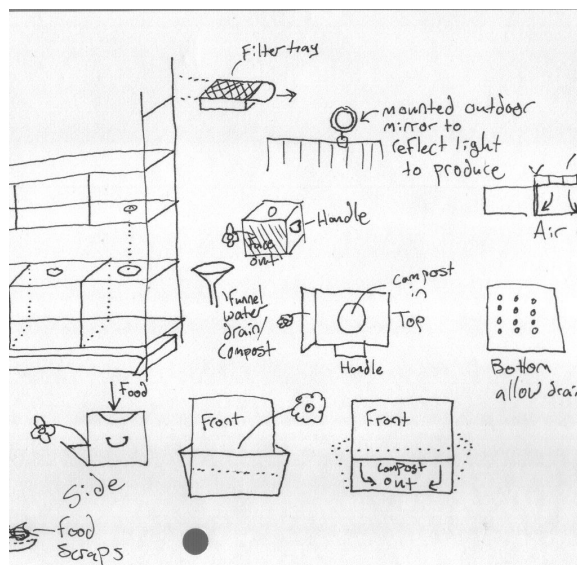 Filter tray
mounted outdoor
mirror to
reflect light
to produce
Handle
Face
out
Air
Funnel
water
drain/
compost
compost
in
Top
Handle
Bottom
allow drain
Food
Side
Front
Front
compost
out
food
scraps